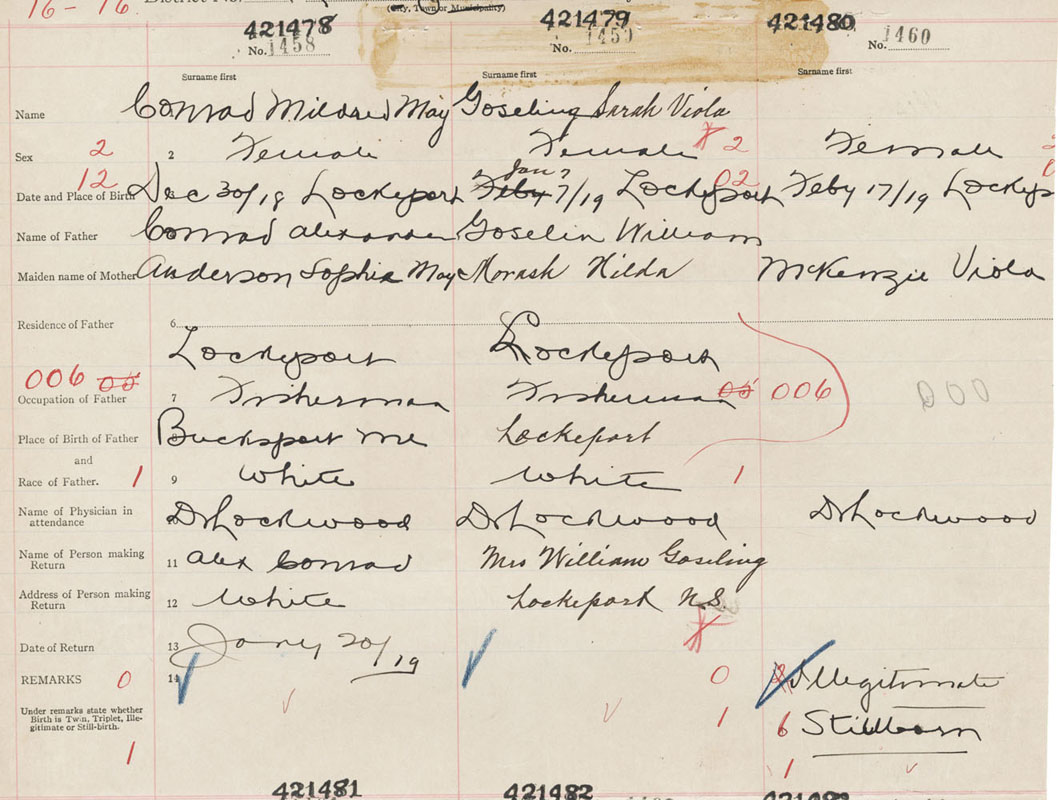 16-16 District No.
(City, Town or Municipality)
421478 421479 421480
No. 1458 No. 1459 No. 1460
Surname first Surname first Surname first
Name Conrad Mildred May Goseling Sarah Viola
Sex 2 2 Female Female 2 Female
12 Jan 7 02
Date and Place of Birth Dec 30/18 Lockeport Feby 7/19 Lockeport Feby 17/19 Lockep
Name of Father Conrad Alexander Goselin William
Maiden name of Mother Anderson Sophia May Morash Hilda McKenzie Viola
Residence of Father 6
Lockeport Lockeport
006 00
Occupation of Father 7 Fisherman Fisherman 00 006 000
Place of Birth of Father Bucksport Me Lockeport
and
Race of Father. 1 9 White White 1
Name of Physician in
attendance Dr Lockwood Dr Lockwood Dr Lockwood
Name of Person making
Return 11 Alex Conrad Mrs William Goseling
Address of Person making
Return 12 White Lockeport N.S.
Date of Return 13 Jany 20/19
REMARKS 0 14 0 Illegitimate
Under remarks state whether
Birth is Twin, Triplet, Ille-
gitimate or Still-birth. 1 6 Stillborn
1 1
421481 421482